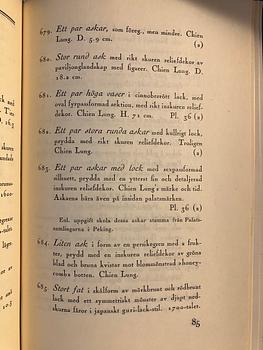 679. Ett par askar, som föreg., men mindre. Chien
Lung. D. 5.9 cm. (2)
680. Stor rund ask med rikt skuren reliefdekor av
paviljonglandskap med figurer. Chien Lung. D.
18.2 cm.
681. Ett par höga vaser i cinnoberrött lack, med
oval fyrpassformad sektion, med rikt inskuren relief-
dekor. Chien Lung. H. 72 cm. Pl. 36 (2)
682. Ett par stora runda askar med kulligt lock,
prydda med rikt skuren reliefdekor. Troligen
Chien Lung. (2)
683. Ett par askar med lock med sexpassformad
silhuett, prydda med en ytterst fin och detaljerad
inskuren reliefdekor. Chien Lung's märke och tid.
Askarna bära även på insidan palatsmärken.
Pl. 36 (2)
Enl. uppgift skola dessa askar stamma från Palats-
samlingarna i Peking.
684. Liten ask i form av en persikogren med 2 fruk-
ter, prydd med en inskuren reliefdekor av gröna
blad och bruna kvistar mot blommönstrad »honey-
comb» botten. Chien Lung.
685. Stort fat i skålform av mörkbrunt och rödbrunt
lack med ett symmetriskt mönster av djupt ned-
skurna fåror i japanskt guri-lack-stil. 1700-talet.
85